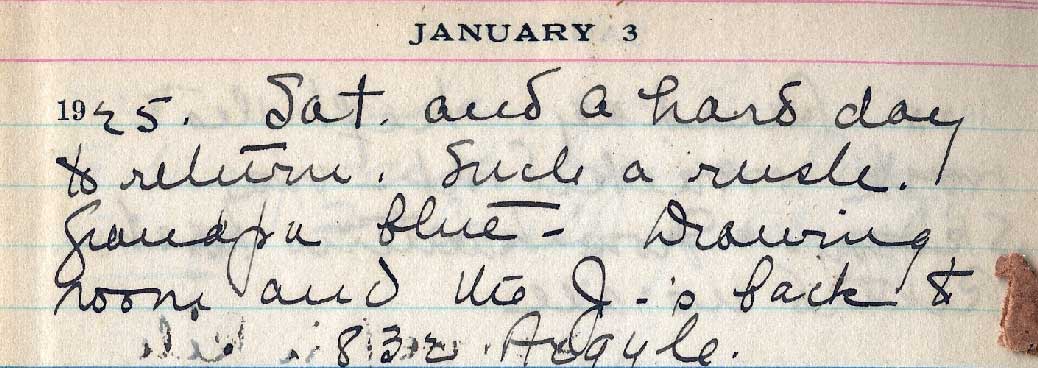 JANUARY 3
1925. Sat. and a hard day
to return. Such a rush.
Grandpa blue - Drawing
room and the J-'s back to
832 Argyle.